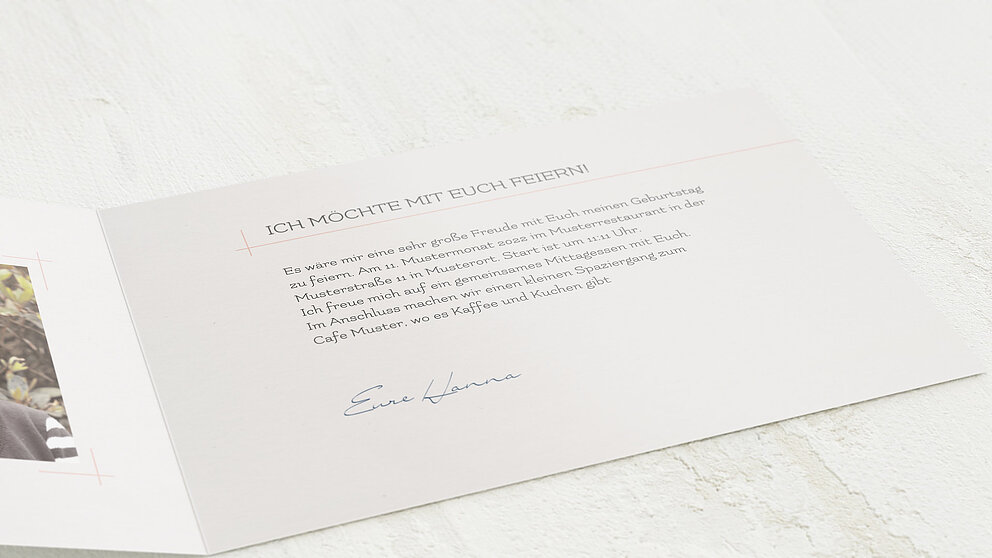 ICH MÖCHTE MIT EUCH FEIERN!
Es wäre mir eine sehr große Freude mit Euch meinen Geburtstag
zu feiern. Am 11. Mustermonat 2022 im Musterrestaurant in der
Musterstraße 11 in Musterort. Start ist um 11:11 Uhr.
Ich freue mich auf ein gemeinsames Mittagessen mit Euch.
Im Anschluss machen wir einen kleinen Spaziergang zum
Cafe Muster, wo es Kaffee und Kuchen gibt
Eure Hanna